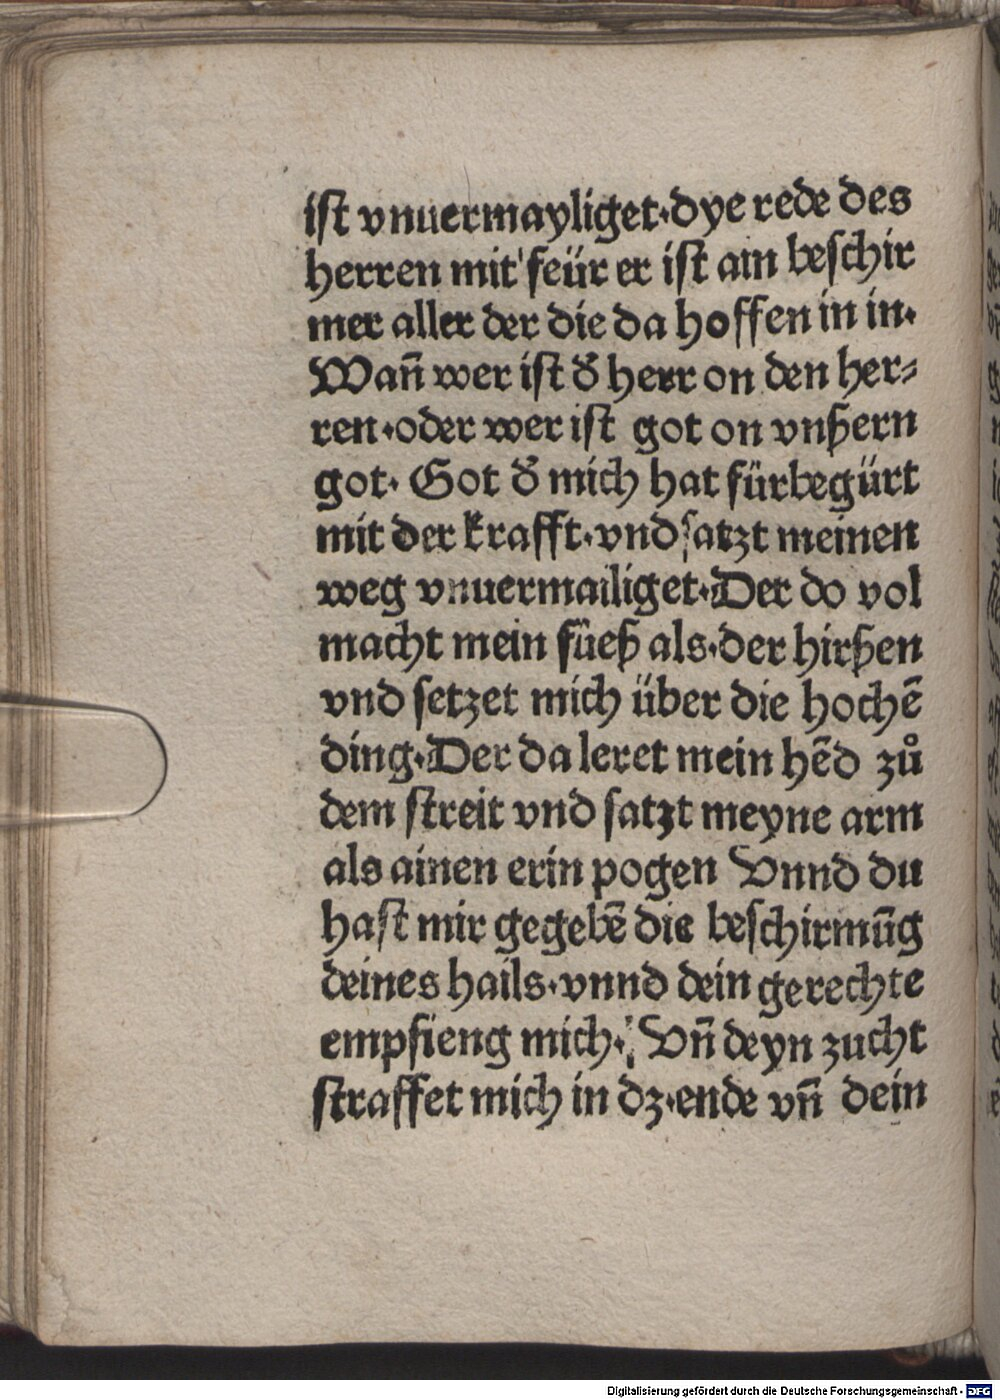 ist vnuermayliget·dye rede des
herren mit feür er ist ain beschir
mer aller der die da hoffen in in·
Wañ wer ist d̕ herr on den her⸗
ren·oder wer ist got on vnßern
got· Got d̕ mich hat fürbegürt
mit der krafft·vnd satzt meinen
weg vnuermailiget·Der do vol
macht mein füeß als·der hirßen
vnd setzet mich über die hochē
ding·Der da leret mein hēd zů
dem streit vnd satzt meyne arm
als ainen erin pogen Vnnd du
hast mir gegebē die beschirmūg
deines hails·vnnd dein gerechte
empfieng mich· Vñ deyn zucht
straffet mich in dz·ende vñ dein
Digitalisierung gefördert durch die Deutsche Forschungsgemeinschaft - DFG